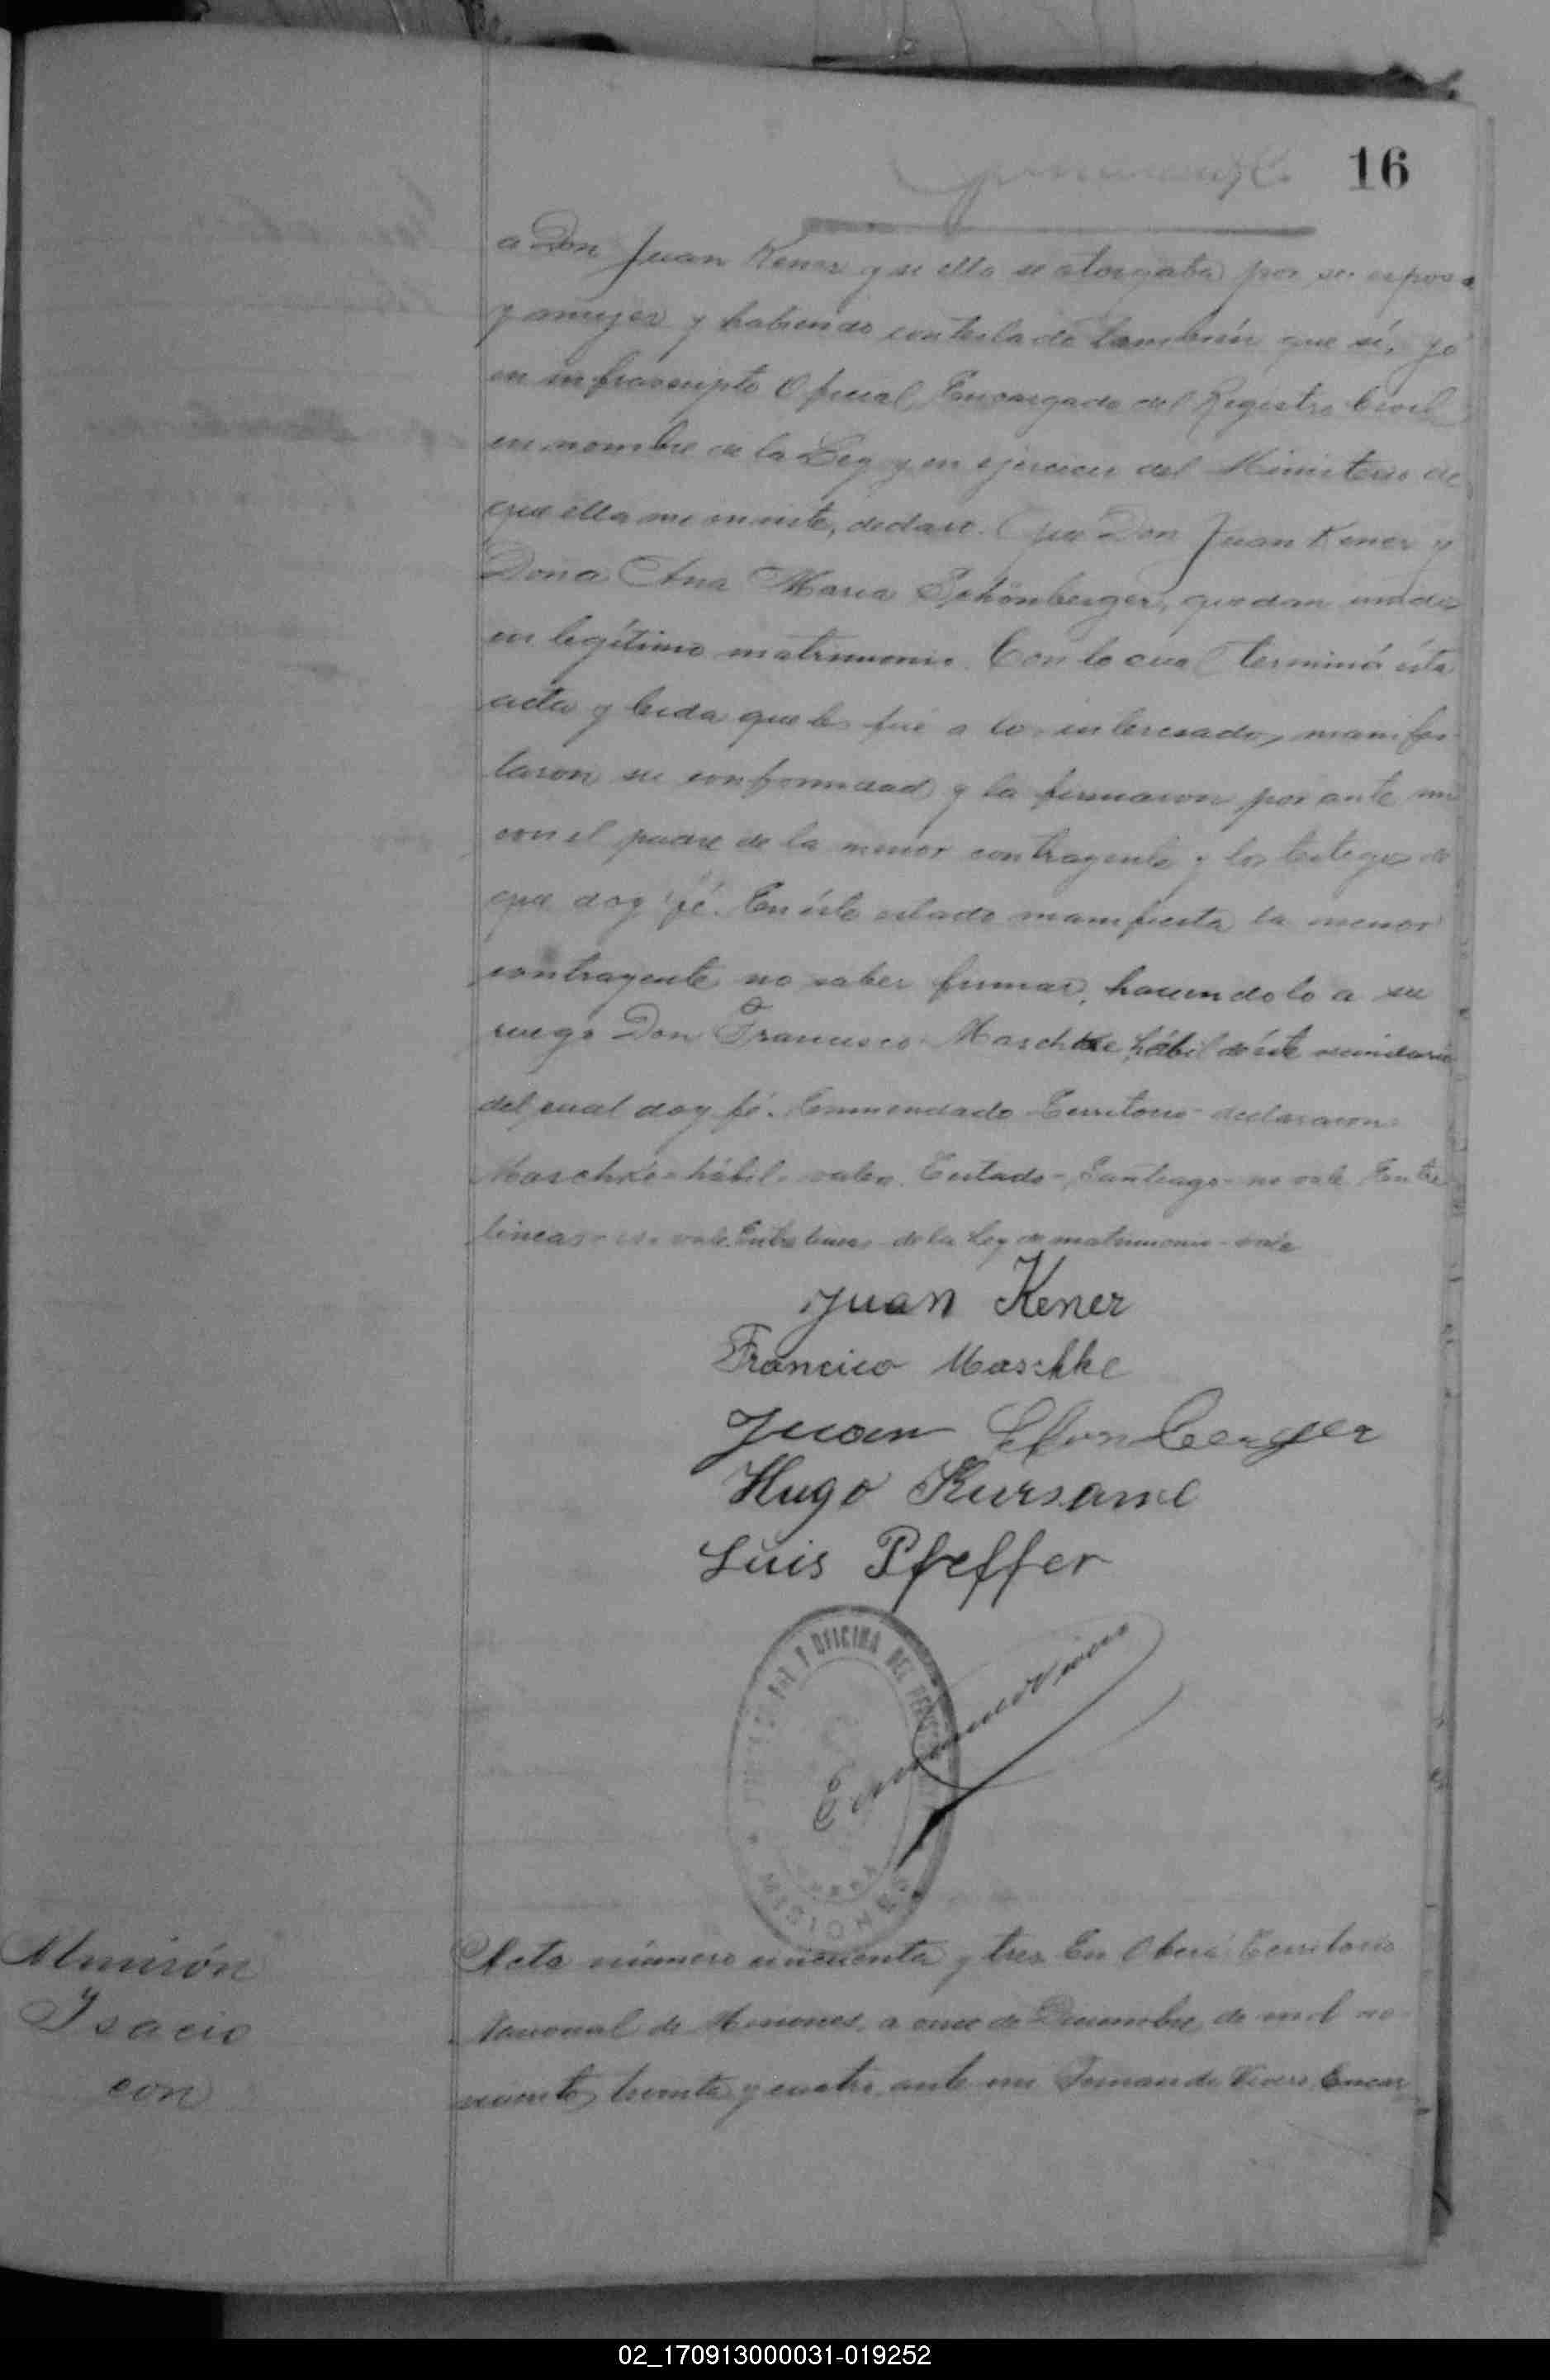 16
a Don Juan Kener y si ella se otorgaba por su esposa
y mujer y habiendo contestado también que sí, yo
en infrascripto Oficial Encargado del Registro Civil
en nombre de la Ley y en ejercicio del Ministerio de
que ella me inviste, declaro. Que Don Juan Kener y
Dona Ana Maria Schönberger, quedan unidos
en legítimo matrimonio. Con lo cual terminó ésta
acta y leida que les fué a los interesados, manifes-
taron su conformidad y la firmaron por ante mi
con el padre de la menor contrayente y los testigos de
que doy fé. En éste estado manifiesta la menor
contrayente no saber firmar, haciendolo a su
ruego Don Francisco Maschke hábil de éste vecindario
del cual doy fé. Enmendado Territorio - declararon
Maschke - hábil - valen. Testado - Santiago - no vale Entre
lineas - vale. Entre lineas - de la Ley de matrimonio - vale
Juan Kener
Francico Maschke
Juan Schonberger
Hugo
Luis Pfeffer
PAZ Y OFICINA DEL
MISIONES
Almirón
Isacio
con
Acta número cincuenta y tres. En Oberá Territorio
Nacional de Misiones, a once de Diciembre de mil no
vecientos treinta y cuatro, ante mi Fernando Vivero Encar
02_170913000031-019252